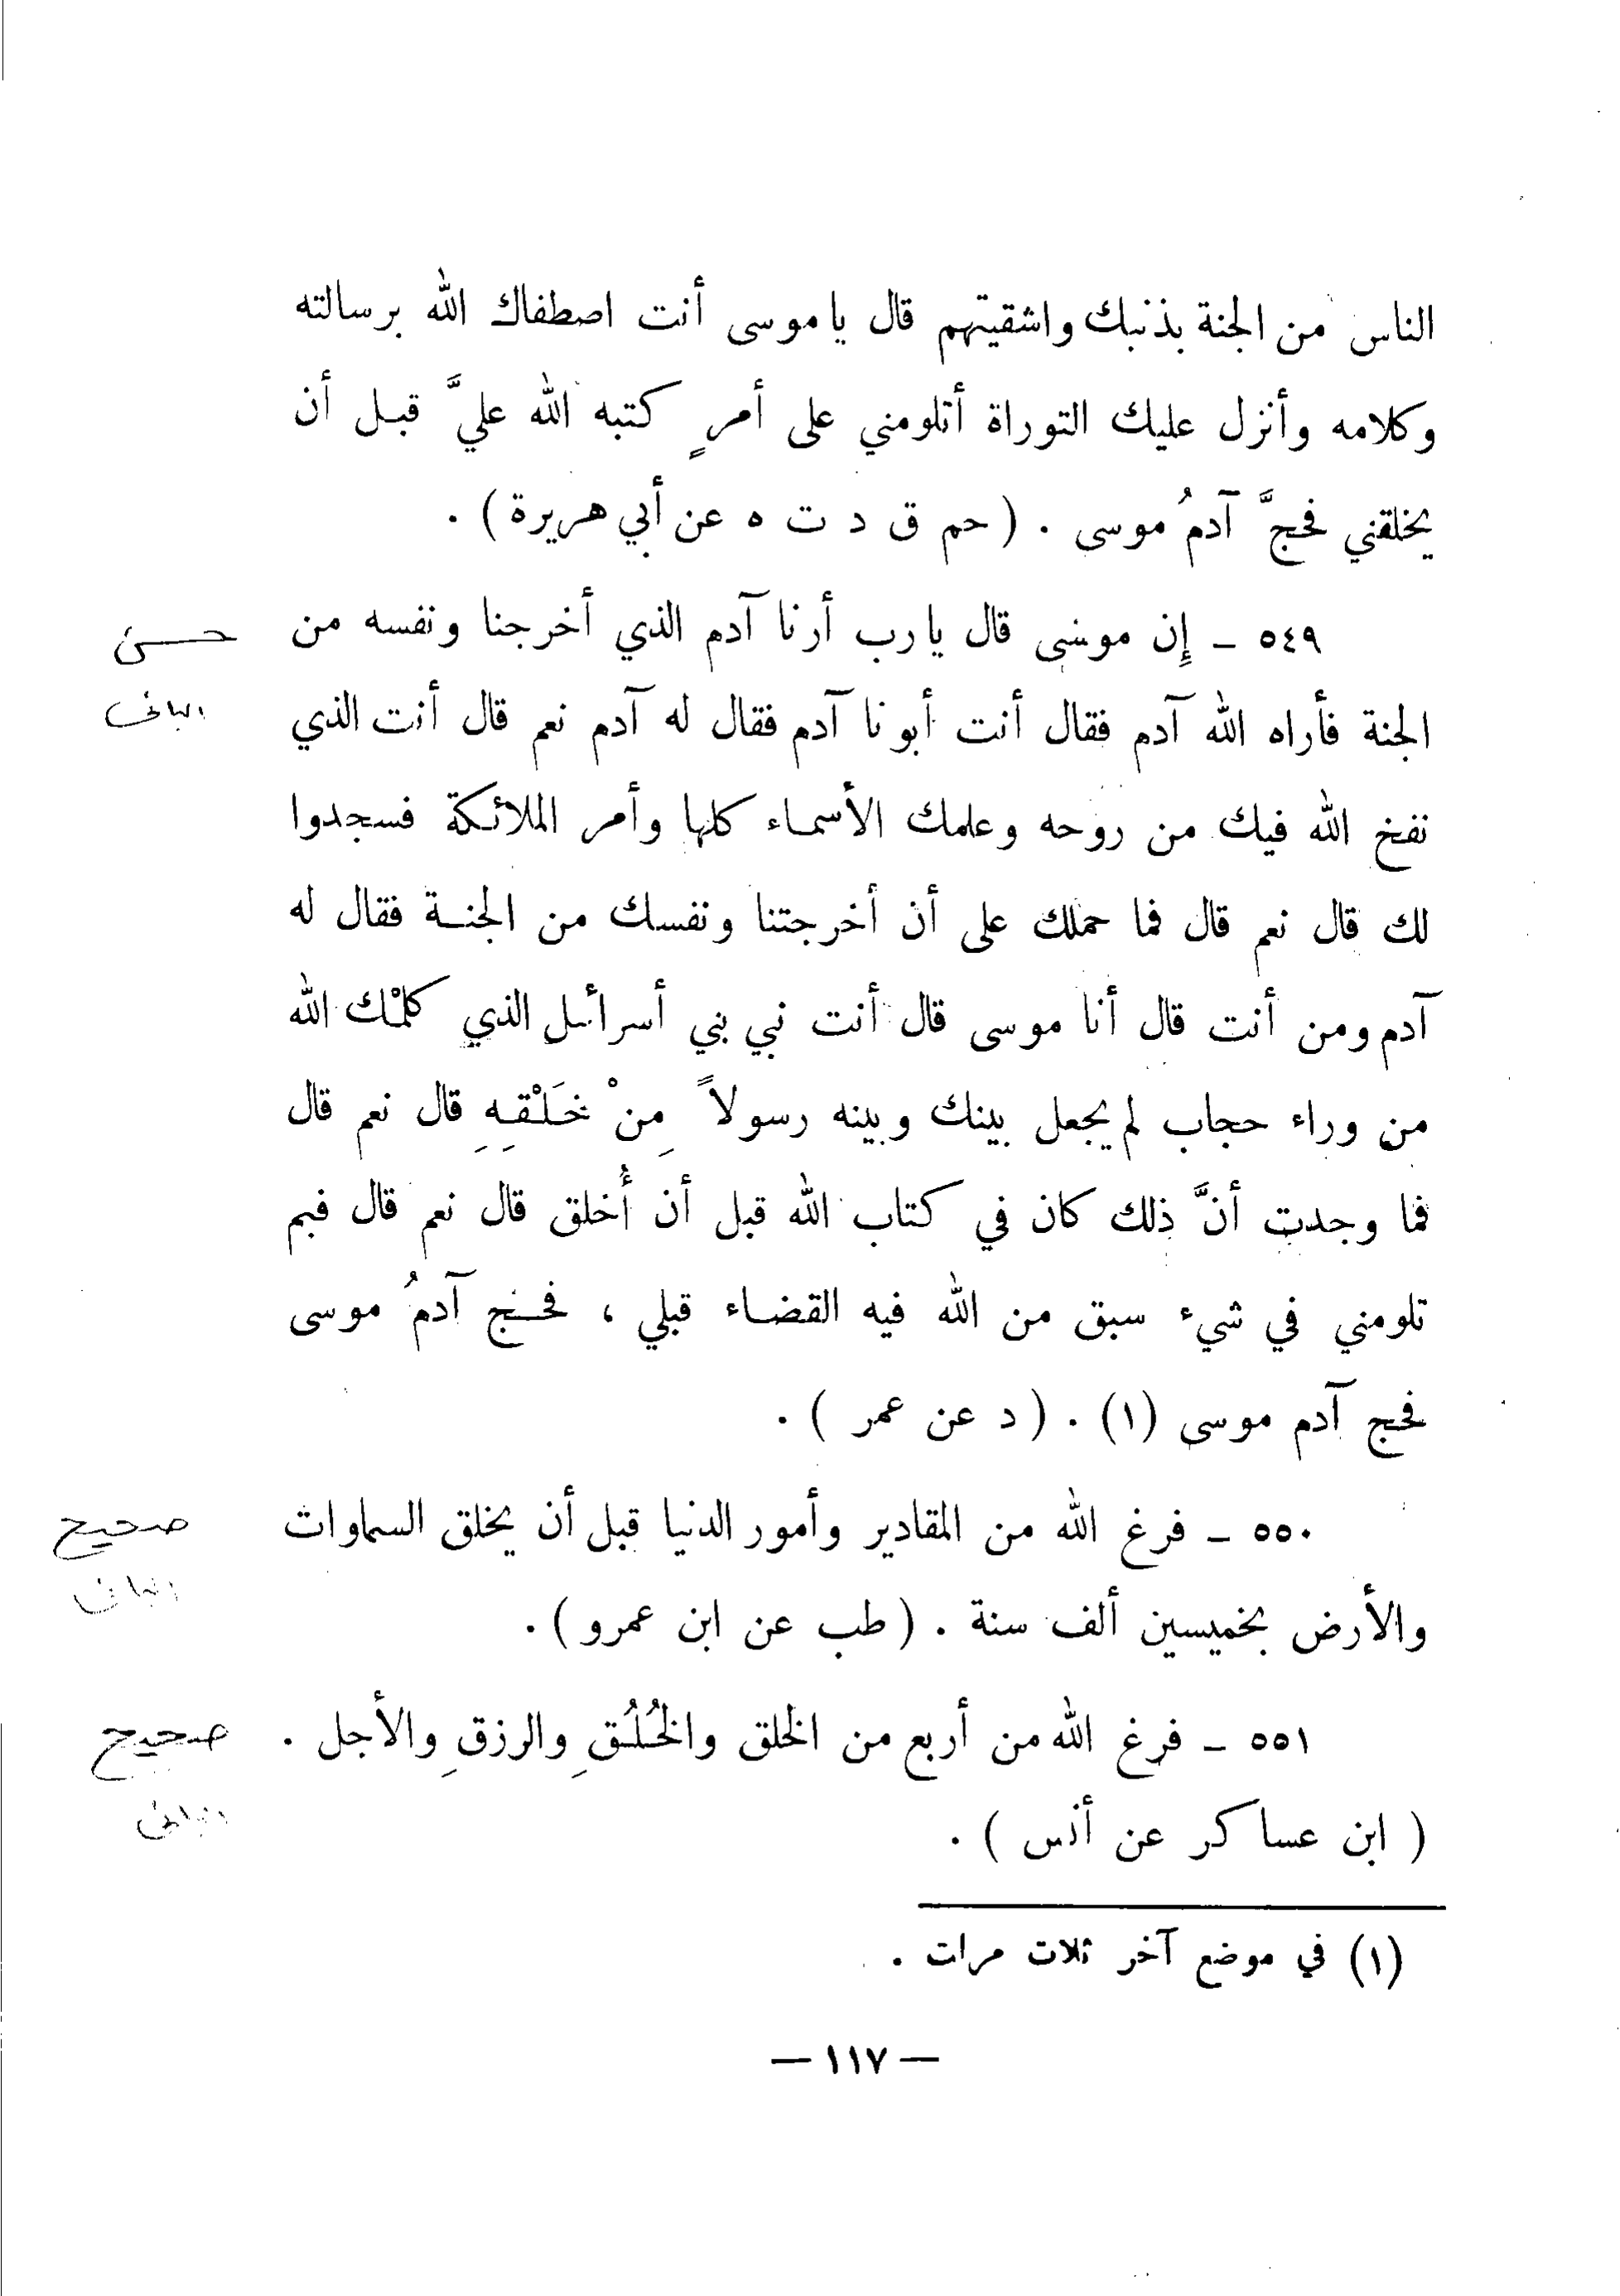 الناس من الجنة بذنبك واشقيتهم قال يا موسى أنت اصطفاك الله برسالته
وكلامه وأنزل عليك التوراة أتلومني على أمرٍ كتبه الله عليَّ قبل أن
يخلقني فحجَّ آدمُ موسى . ( حم ق د ت ه عن أبي هريرة ) .
٥٤٩ - إِن موسى قال يا رب أرنا آدم الذي أخرجنا ونفسه من
حسن
الجنة فأراه الله آدم فقال أنت أبونا آدم فقال له آدم نعم قال أنت الذي
البانى
نفخ الله فيك من روحه وعلمك الأسماء كلها وأمر الملائكة فسجدوا
لك قال نعم قال فما حملك على أن أخرجتنا ونفسك من الجنة فقال له
آدم ومن أنت قال أنا موسى قال أنت نبي بني أسرائيل الذي كلمْك الله
من وراء حجاب لم يجعل بينك وبينه رسولاً مِنْ خَلْقِهِ قال نعم قال
فما وجدت أنَّ ذلك كان في كتاب الله قبل أن أُخلق قال نعم قال فبم
تلومني في شيء سبق من الله فيه القضاء قبلي ، فحج آدمُ موسى
فحج آدم موسى (١) . ( د عن عمر ) .
٥٥٠ - فرغ الله من المقادير وأمور الدنيا قبل أن يخلق السماوات
صحيح
البانى
والأرض بخميسين ألف سنة . ( طب عن ابن عمرو ) .
٥٥١ - فرغ الله من أربع من الخلق والخُلُقِ والرزقِ والأجل .
صحيح
البانى
( ابن عساكر عن أنس ) .
(١) في موضع آخر ثلاث مرات .
— ١١٧ —